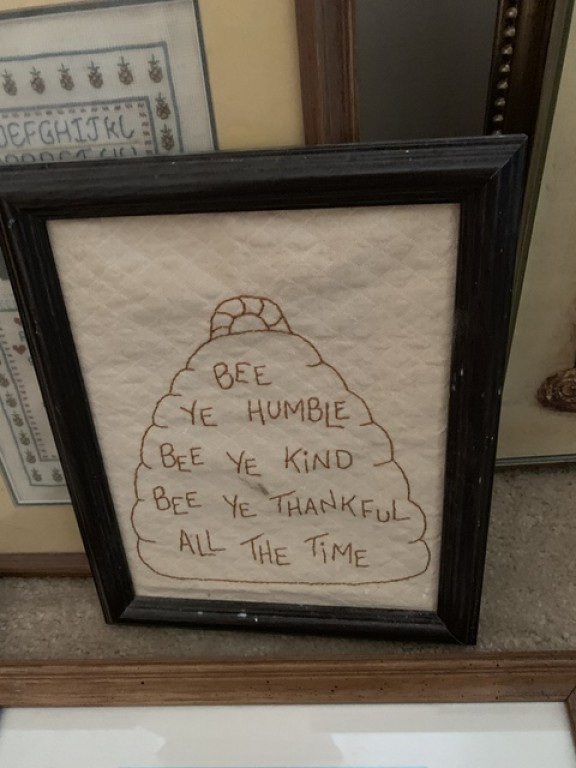 DEFGHIJKL
BEE
YE HUMBLE
BEE YE KiND
BEE YE THANKFUL
ALL THE TiME